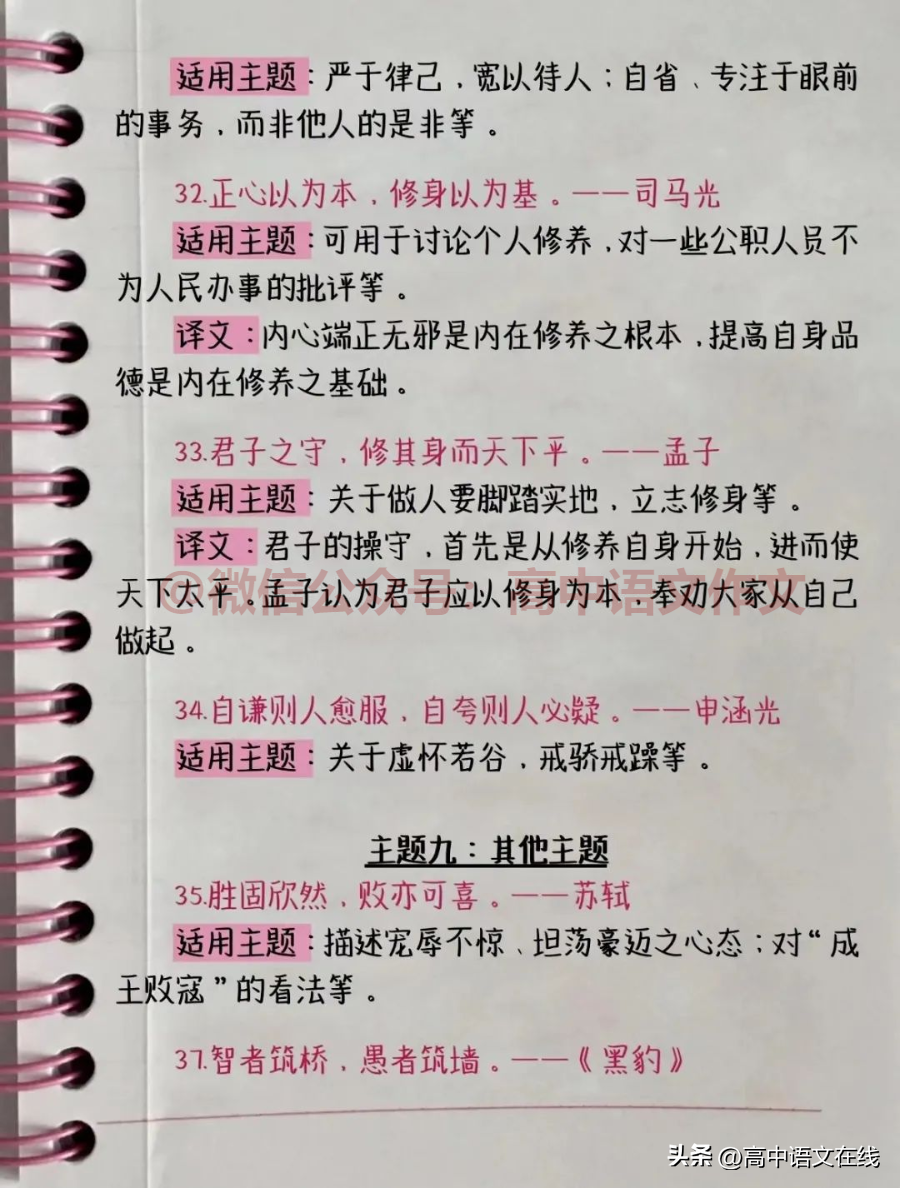 适用主题：严于律己，宽以待人；自省、专注于眼前
的事务，而非他人的是非等。
32.正心以为本，修身以为基。——司马光
适用主题：可用于讨论个人修养，对一些公职人员不
为人民办事的批评等。
译文：内心端正无邪是内在修养之根本，提高自身品
德是内在修养之基础。
33.君子之守，修其身而天下平。——孟子
适用主题：关于做人要脚踏实地，立志修身等。
译文：君子的操守，首先是从修养自身开始，进而使
天下太平。孟子认为君子应以修身为本，奉劝大家从自己
@微信公众号：高中语文作文
做起。
34.自谦则人愈服，自夸则人必疑。——申涵光
适用主题：关于虚怀若谷，戒骄戒躁等。
主题九：其他主题
35.胜固欣然，败亦可喜。——苏轼
适用主题：描述宠辱不惊、坦荡豪迈之心态；对“成
王败寇”的看法等。
37.智者筑桥，愚者筑墙。——《黑豹》
头条 @高中语文在线